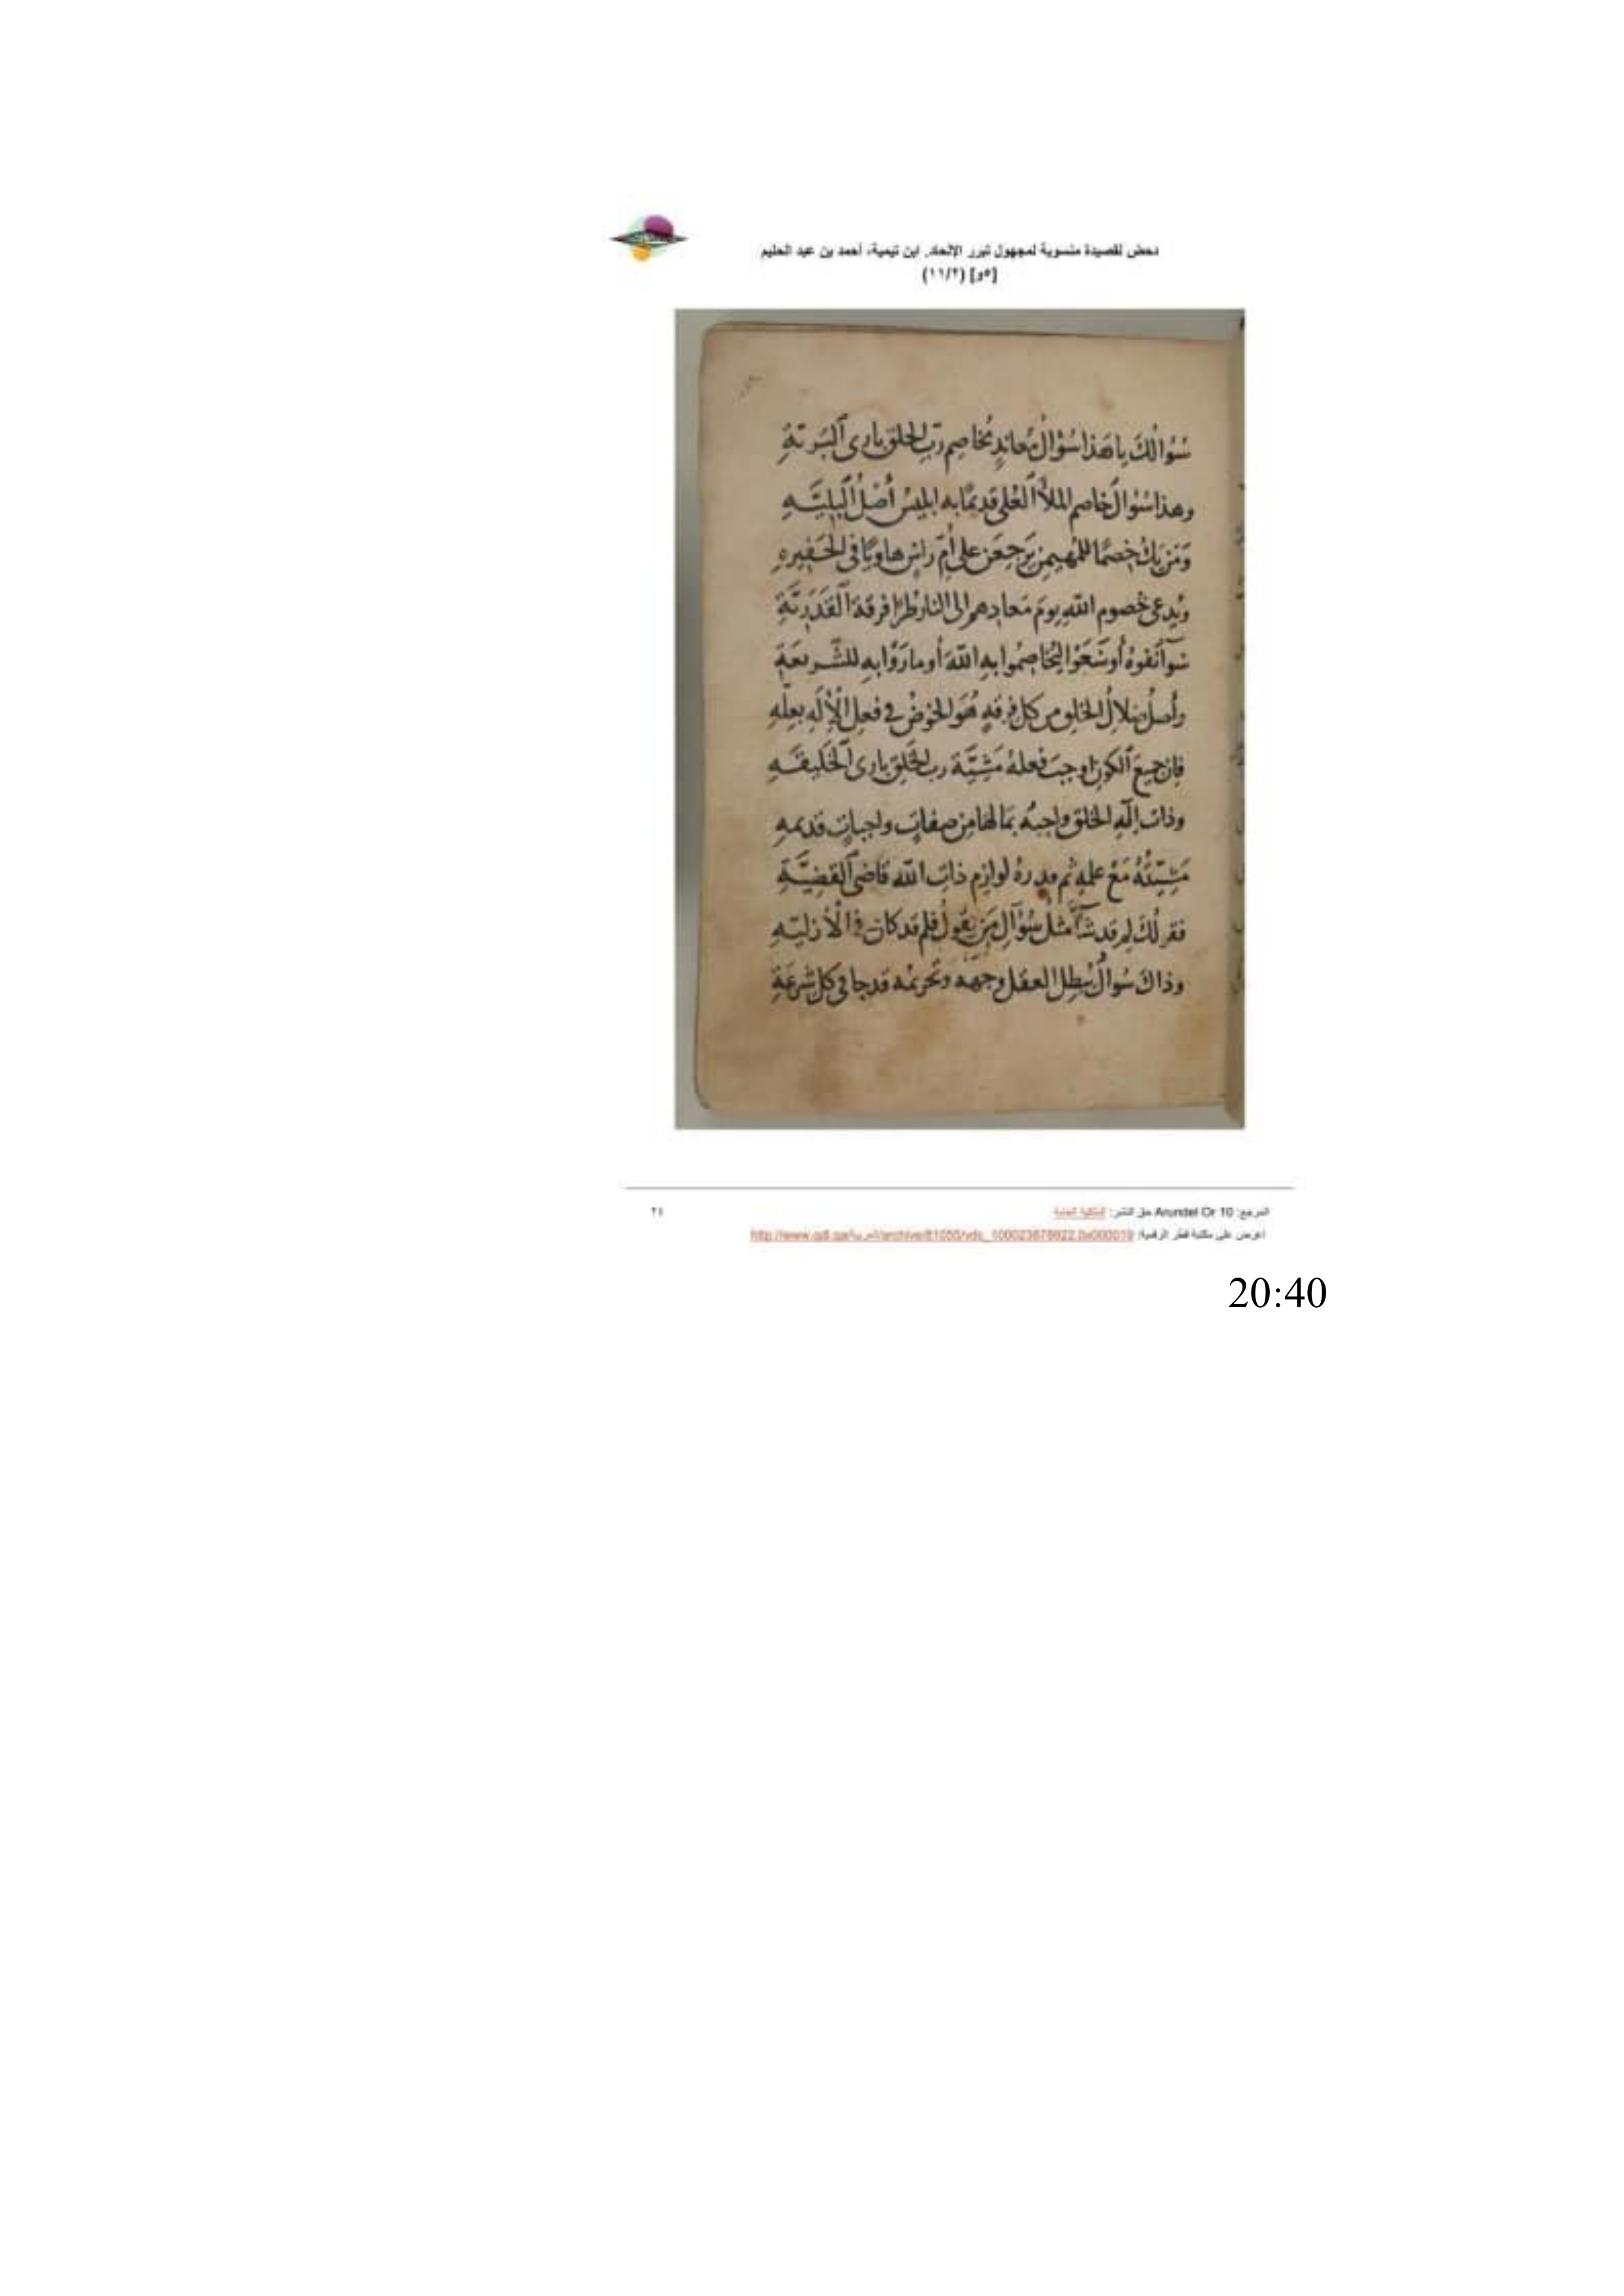 دحض لقصيدة منسوبة لمجهول تبرر الإلحاد. ابن تيمية، أحمد بن عبد الحليم
[٥و] (١١/٢)
سُؤالكَ يا هَذا سُؤالُ مُعاندٍ يُخاصِم ربّ الخلق بارى البَريّةِ
وهذا سُؤالٌ خاصم الملأ العُلى قديمًا به ابليسُ أصْلُ البَليّهِ
وَمَن يكُ خصمًا للمُهيمن يَرجعَن على أمّ راسٍ هاويًا فى الحَفيره
ويُدعى خصوم اللهِ يومَ مَعادهم الى النار طرًا فرقةَ القَدَريّةِ
سَوآ نَفوهُ أو سَعَوْا ليُخاصِمُوا به اللهَ أو مارَوْا به للشّريعَةِ
وأصلُ ضلالِ الخلقِ من كل فرقةٍ هُوَ الخوضُ في فعل الإلَهِ بعلّهِ
فإن جميعَ الكون اوجبَ فعلهُ مَشيّة رب الخَلق بارى الخَليقَهِ
وذات إلهِ الخلق واجبه بمَا لها من صفاتٍ واجباتٍ قديمه
مَشيّتُهُ مَعْ علمه ثم قدرهُ لوازم ذاتِ الله قاضى القَضِيّةِ
فقولُكَ لم قد شآ مثلُ سُؤالِ مَن يقولُ فلم قد كان في الأزليّهِ
وذاك سُوالٌ يُبطل العقل وجهه وتحريمه قد جا في كل شرعَةِ
المرجع: Arundel Or 10 حق النشر: الملكية العامة
٢٤
اعرض على مكتبة قطر الرقمية:
20:40